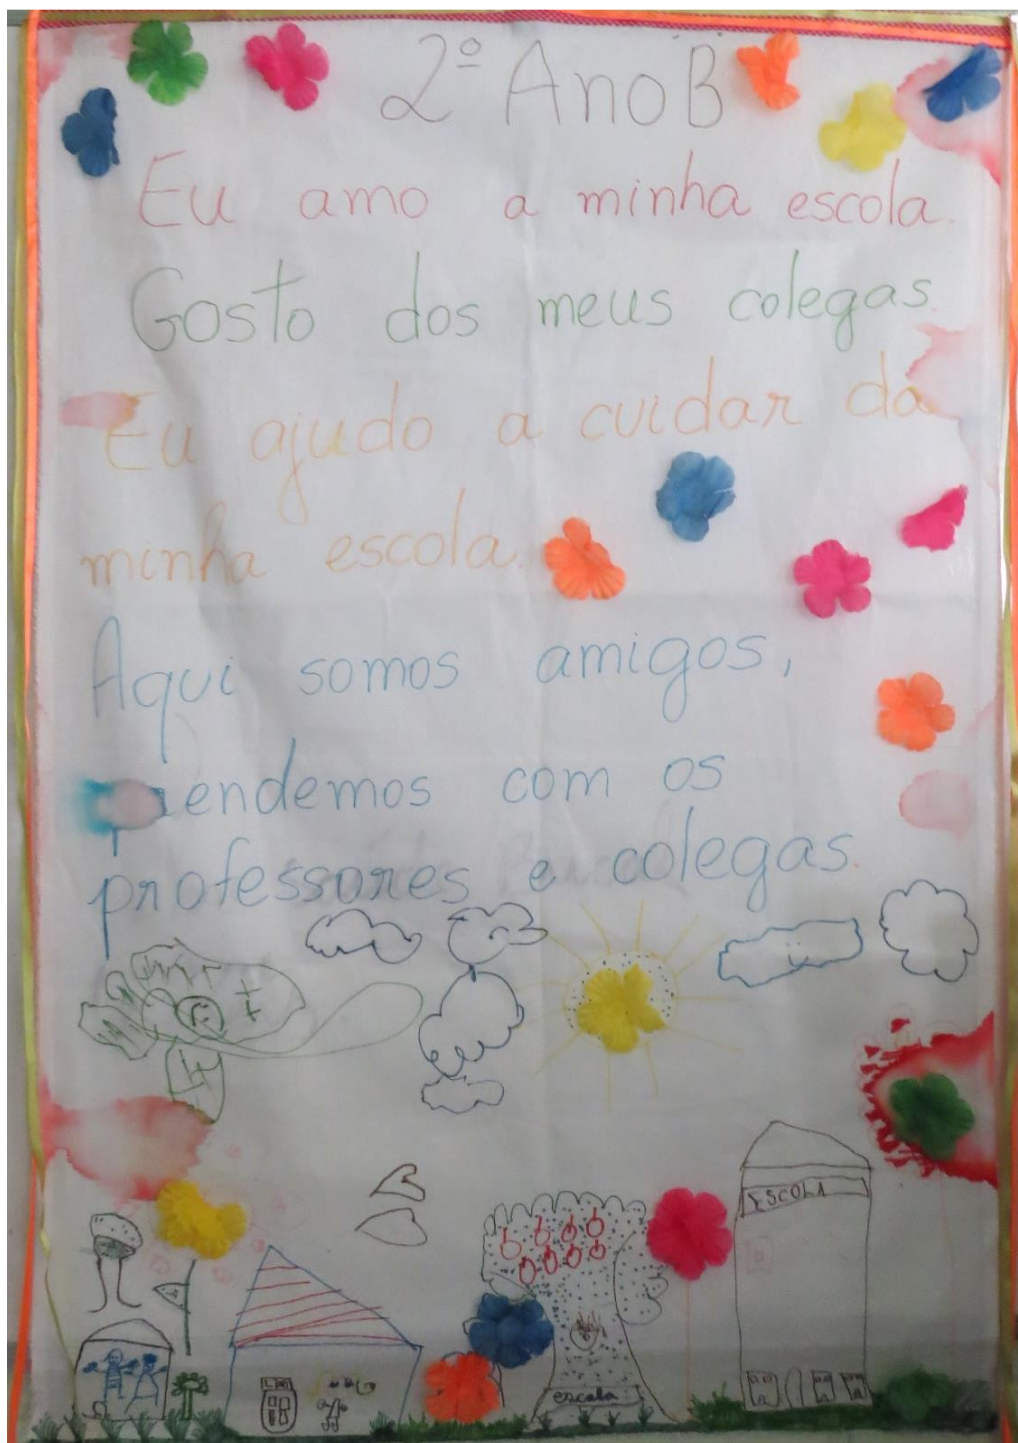 2º Ano B
Eu amo a minha escola.
Gosto dos meus colegas.
Eu ajudo a cuidar da
minha escola.
Aqui somos amigos,
com os
professores e colegas.
ESCOLA
escola